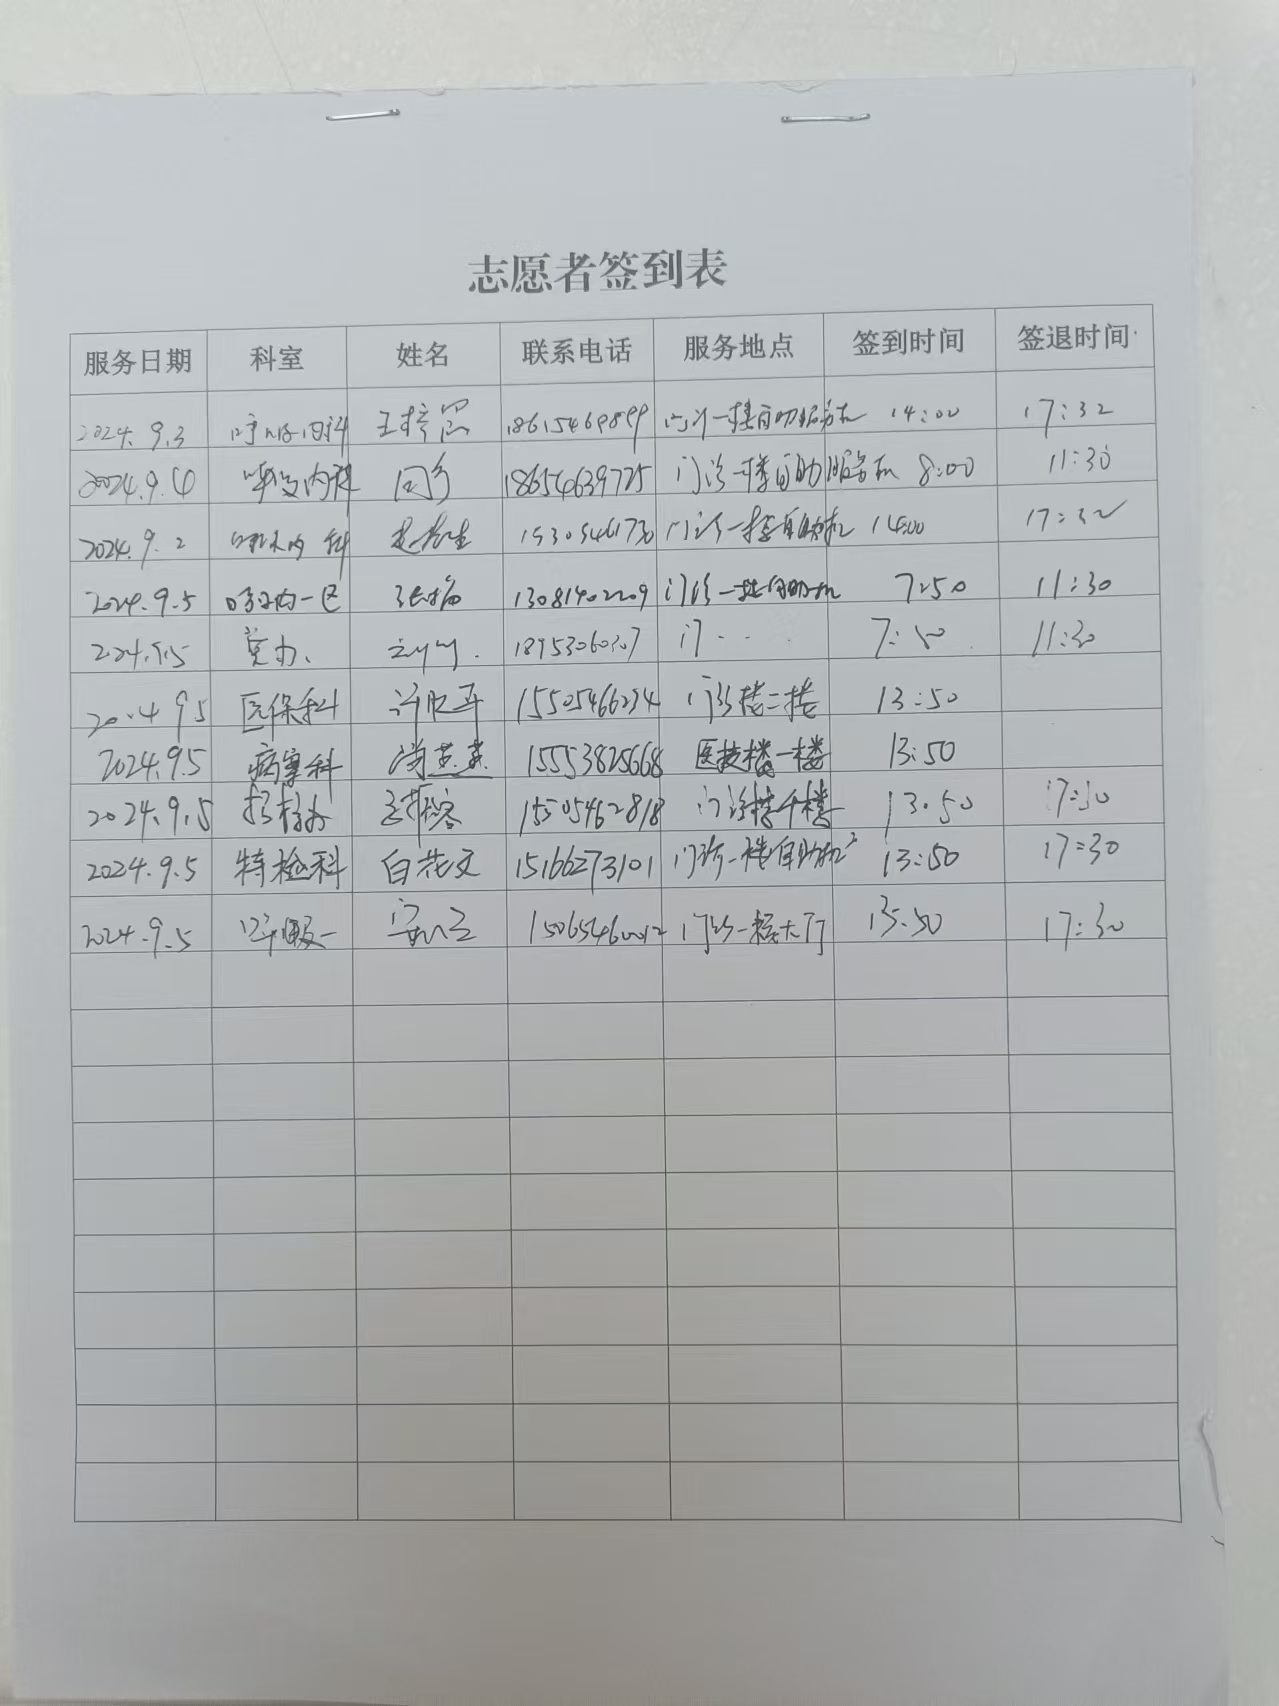 志愿者签到表
服务日期 科室 姓名 联系电话 服务地点 签到时间 签退时间
2024.9.3 呼吸内科 18615469899 门诊一楼自助服务机 14:00 17:32
2024.9.4 呼吸内科 18654639725 门诊一楼自助服务机 8:00 11:30
2024.9.2 科 门诊一楼自助机 14:00 17:32
2024.9.5 呼内一区 13081402209 门诊一楼自助机 7:50 11:30
2024.9.5 党办 18953060307 门 7:50 11:30
2024 9 5 医保科 15505466234 门诊楼二楼 13:50
2024.9.5 病案科 尚燕燕 15553825668 医技楼一楼 13:50
2024.9.5 15505462818 门诊楼 楼 13:50 17:30
2024.9.5 特检科 白花文 15166273101 门诊一楼自助机 13:50 17:30
2024.9.5 15065460012 门诊一楼大厅 13:50 17:30